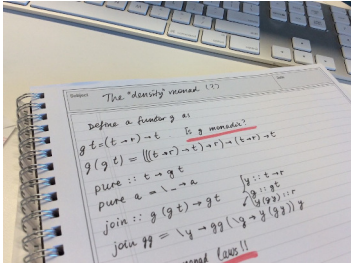 Subject
The "density" monad (?)
Date
Define a functor g as
g t = (t → r) → t
Is g monadic?
g (g t) = (((t → r) → t) → r) → (t → r) → t
pure :: t → g t
pure a = \_ → a
join :: g (g t) → g t
y :: t → r
g :: g t
y (g y) :: r
join gg = \y → gg (\g → y (g y)) y
monad laws!!